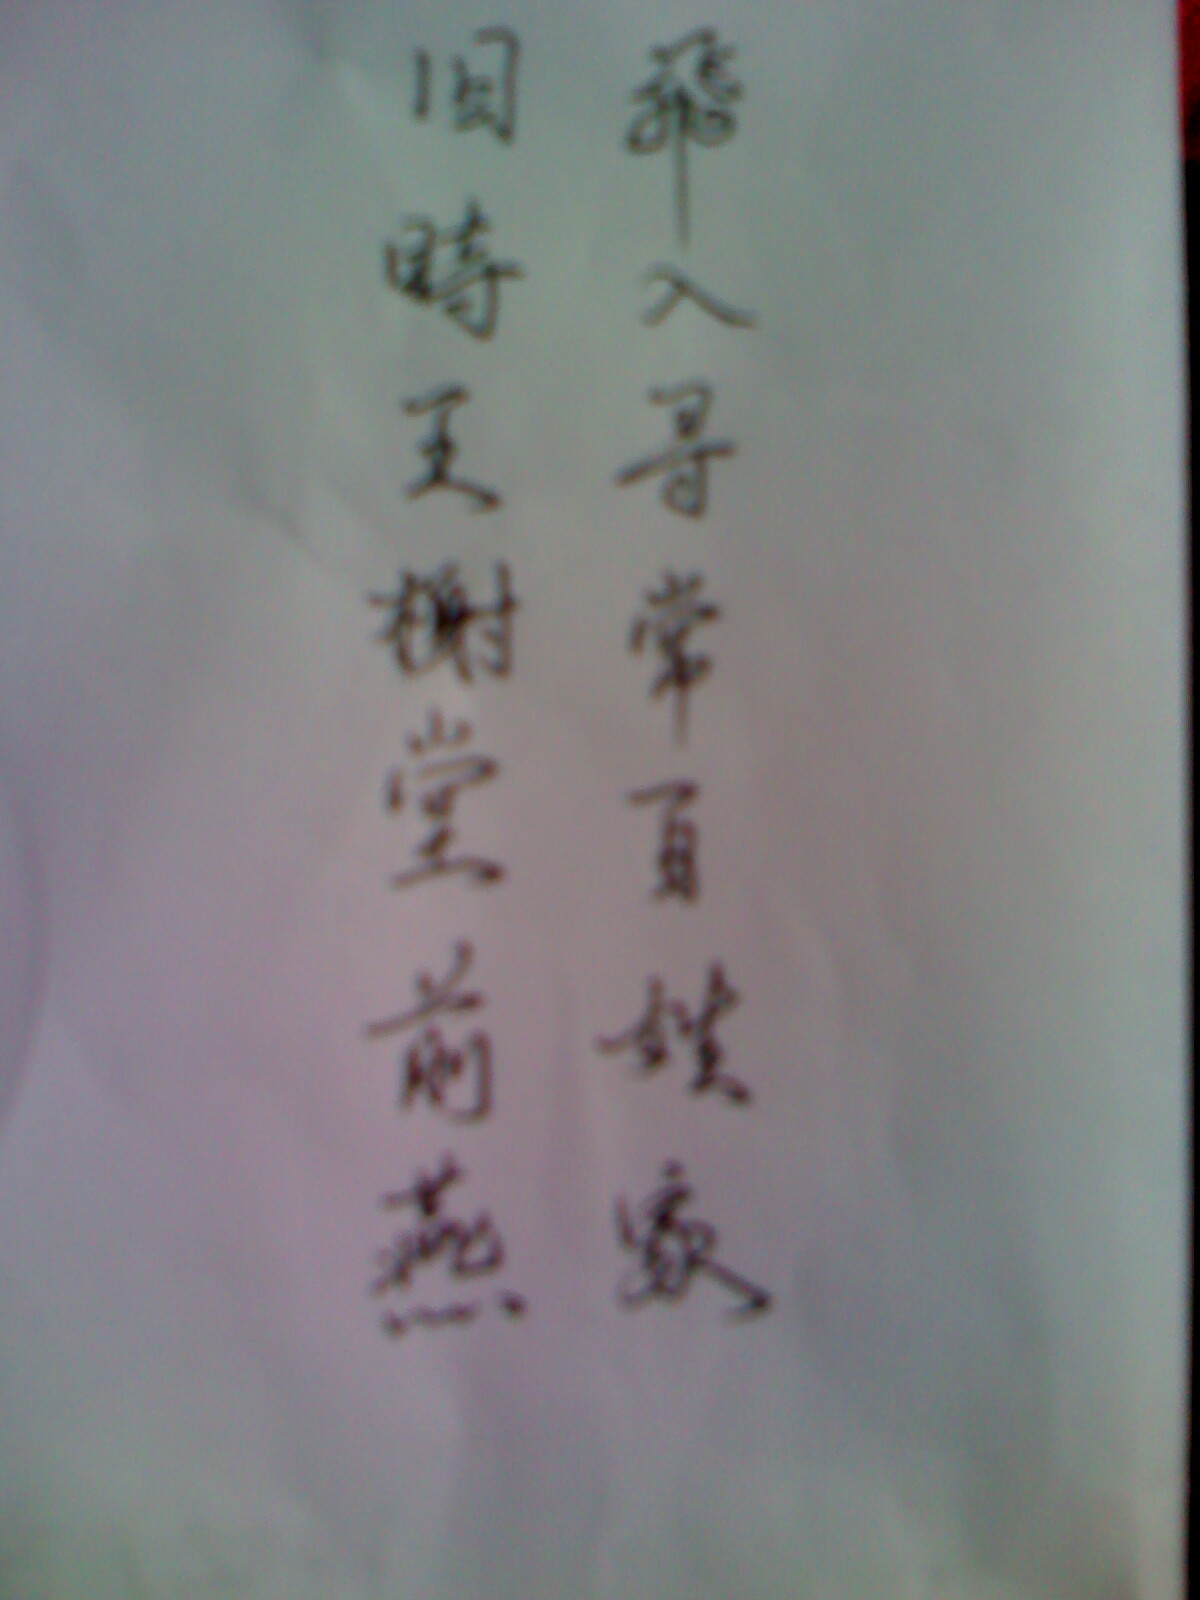 旧時王榭堂前燕
飛入寻常百姓家